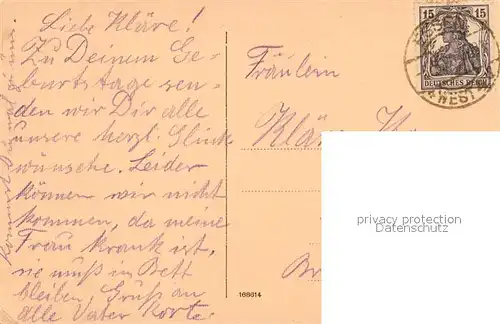 Liebe Kläre!
Zu Deinem Ge-
burtstage sen-
den wir Dir alle
unsere herzl. Glück
wünsche. Leider
können wir nicht
kommen, da meine
Frau krank ist,
sie muß in Bett
bleiben, Gruß an
alle Vater Korte.
Fräulein
Kläre
168614
15 15
DEUTSCHES REICH
privacy protection
oldthing.de